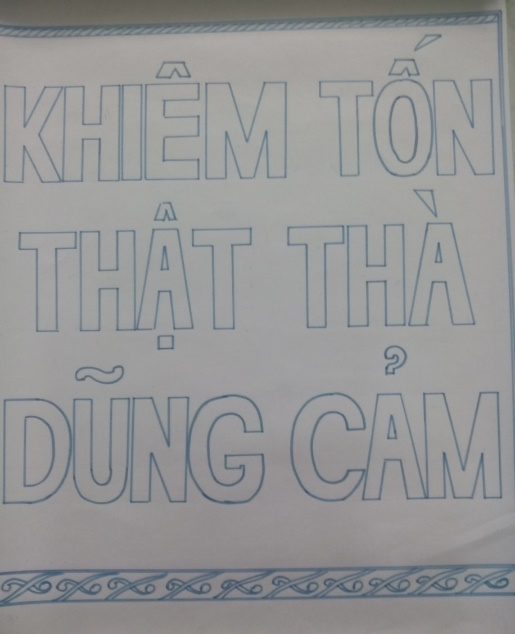 KHIÊM TỐN
THẬT THÀ
DŨNG CẢM